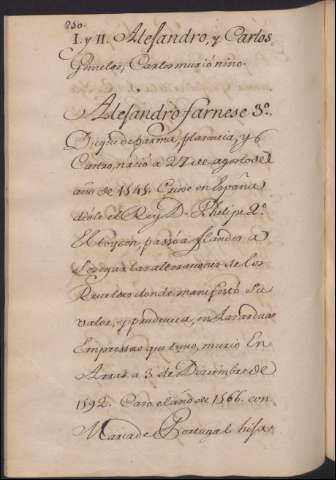 230.
I. y II. Alesandro, y Carlos
Gemelos, Carlos murió niño.
Alesandro farnese 3º.
Duque de parma, placencia, y
Castro, nació a 27 de agosto del
año de 1545. Criose en España
diole el Rey D. Phelipe 2º.
El toyson, passó a flandes a
las alteraciones de los
Reveldes donde manifestó su
valor, y prudencia, en las arduas
Empressas que tuvo, murio En
Arras a 3 de Diciembre de
1592. Casó el año de 1566. con
Maria de Portugal hija